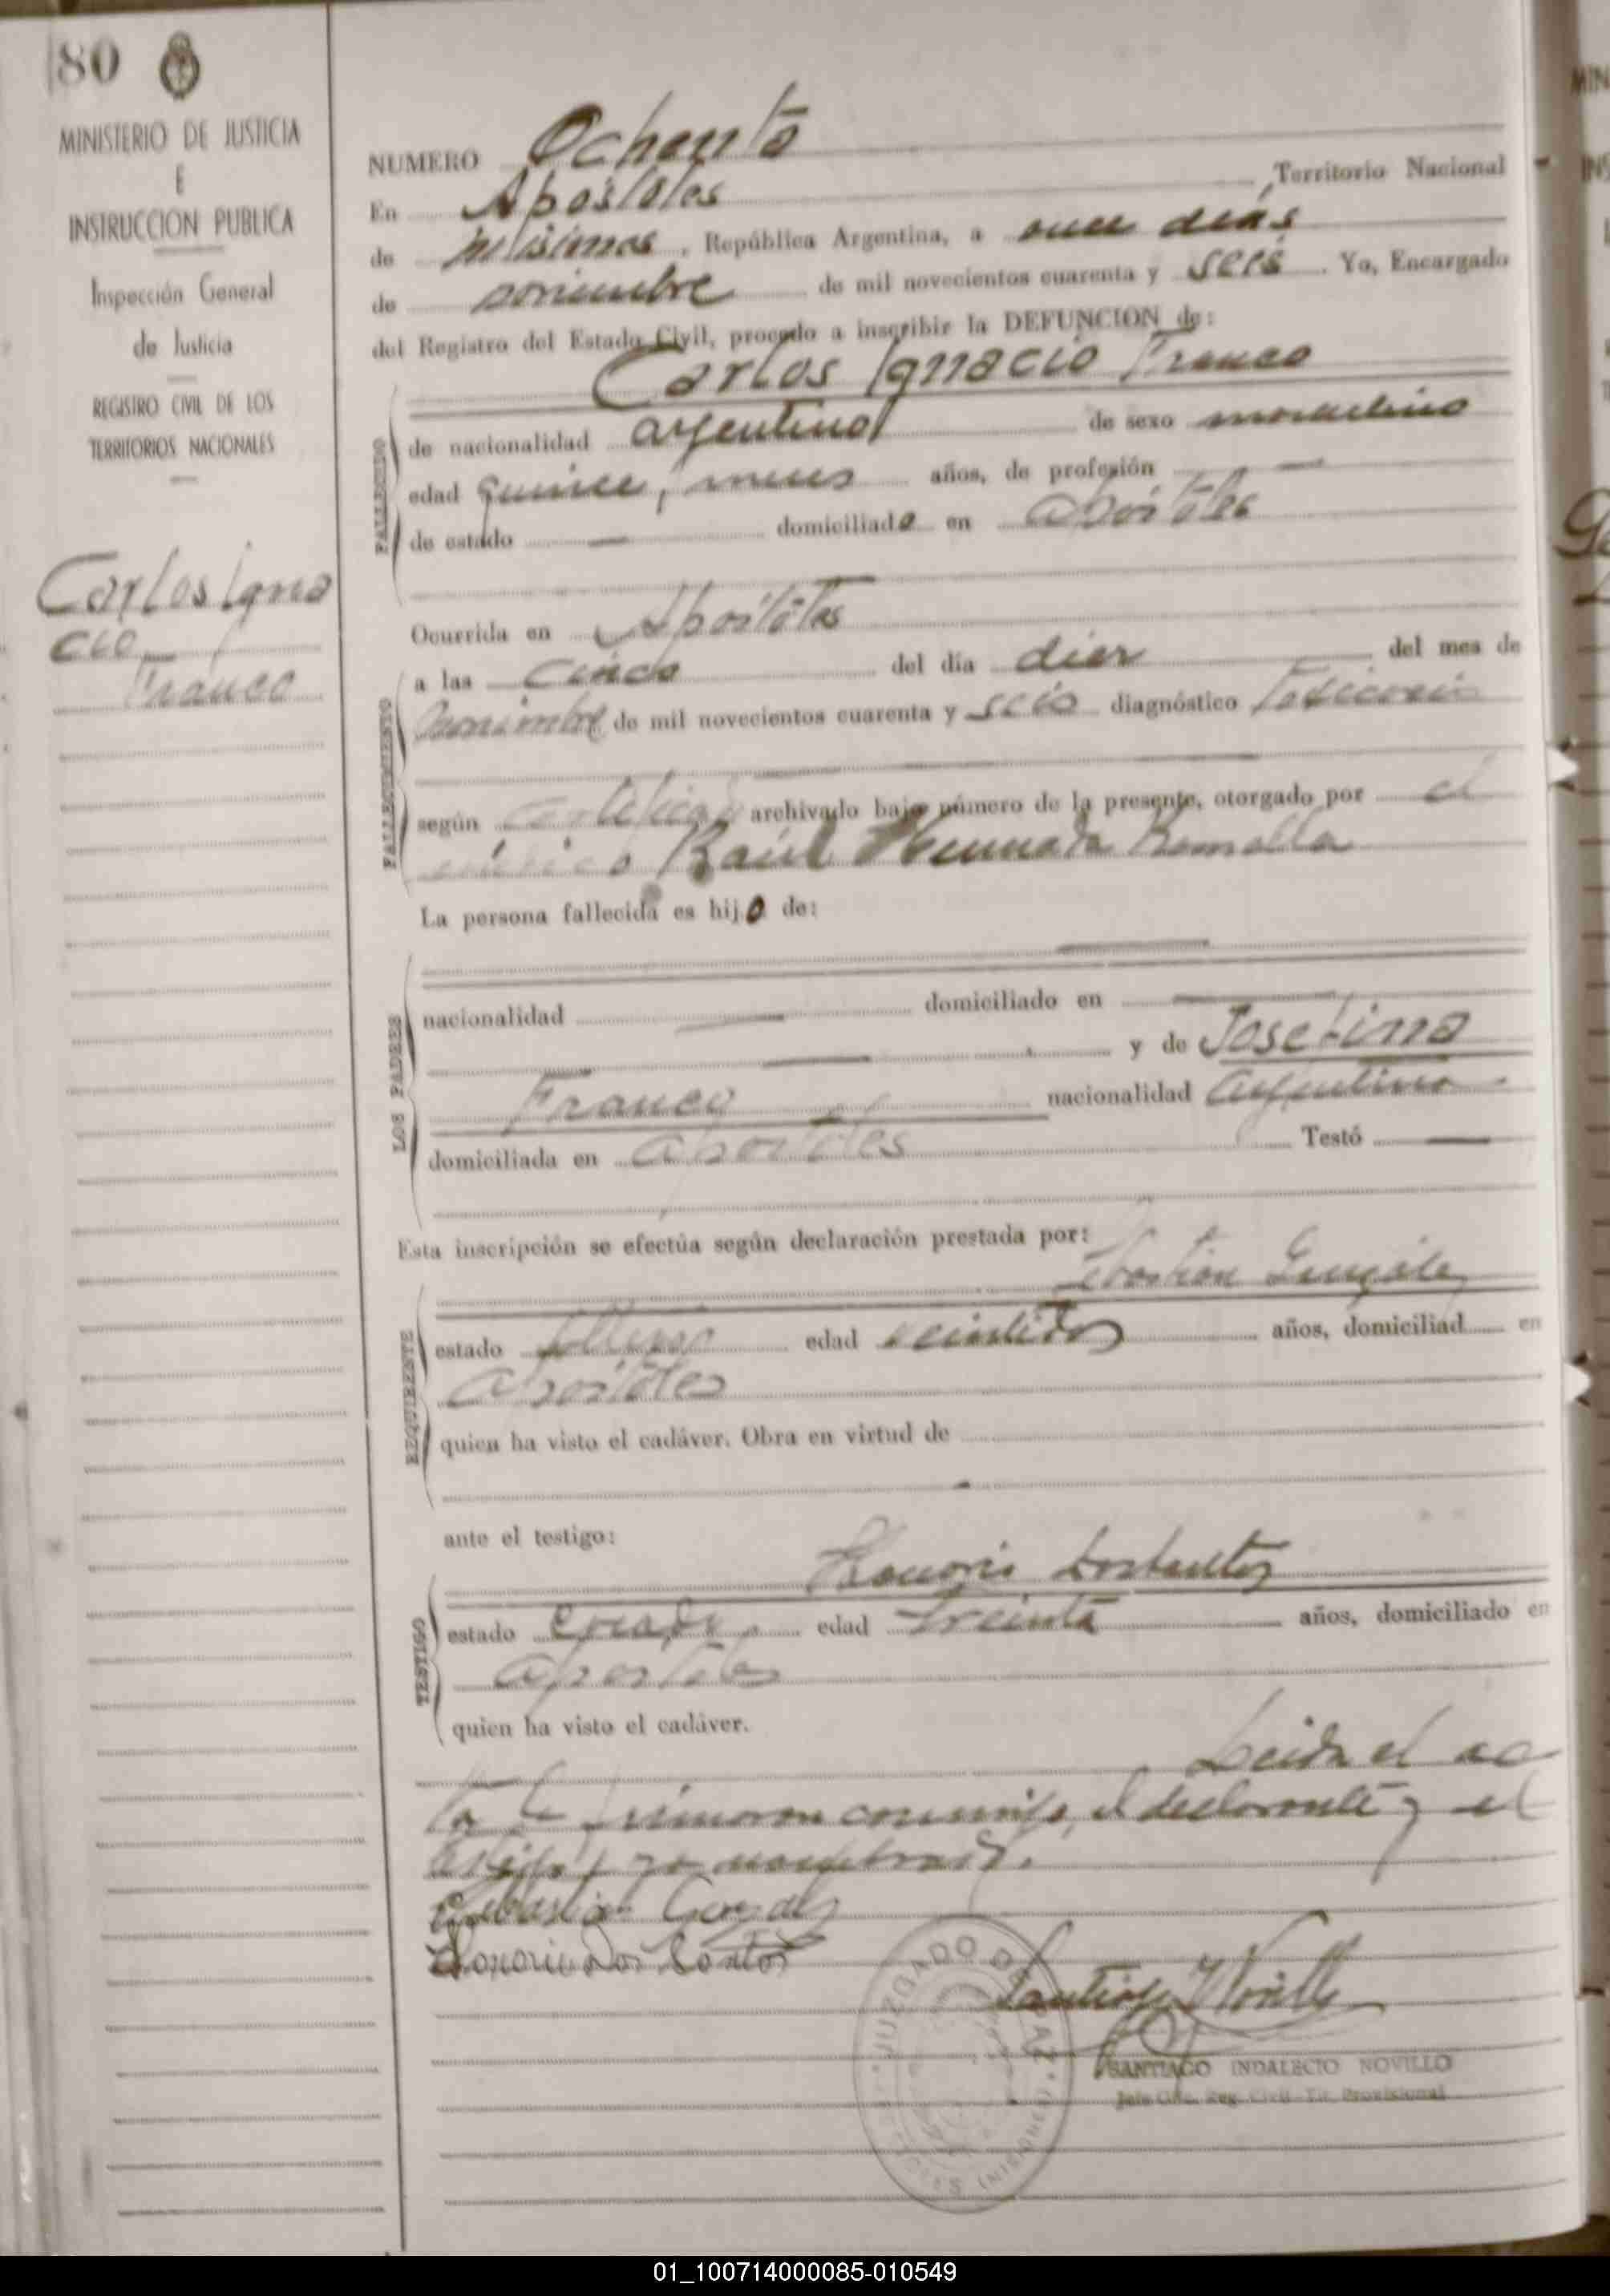 80
MINISTERIO DE JUSTICIA
E
INSTRUCCION PUBLICA
Inspección General
de Justicia
REGISTRO CIVIL DE LOS
TERRITORIOS NACIONALES
Carlos Igna
cio
Franco
NUMERO Ochenta
En Apóstoles, Territorio Nacional
de Misiones, República Argentina, a once días
de noviembre de mil novecientos cuarenta y seis. Yo, Encargado
del Registro del Estado Civil, procedo a inscribir la DEFUNCION de:
Carlos Ignacio Franco
FALLECIDO
de nacionalidad argentino de sexo masculino
edad quince, meses años, de profesión —
de estado — domiciliado en Apóstoles
FALLECIMIENTO
Ocurrida en Apóstoles
a las cinco del día diez del mes de
noviembre de mil novecientos cuarenta y seis diagnóstico
según certificado archivado bajo número de la presente, otorgado por el
médico Raúl
La persona fallecida es hijo de:
LOS PADRES
nacionalidad — domiciliado en —
— y de Josefina
Franco nacionalidad argentina
domiciliada en Apóstoles Testó —
Esta inscripción se efectúa según declaración prestada por:
Sebastián González
REQUIRENTE
estado soltero edad veintidos años, domiciliad en
Apóstoles
quien ha visto el cadáver. Obra en virtud de
ante el testigo:
Honorio Dos Santos
TESTIGO
estado casado edad treinta años, domiciliado en
Apóstoles
quien ha visto el cadáver.
Leida el ac
ta la firmaron conmigo, el declarante y el
testigo ya nombrado.
Sebastián Gonzalez
Honorio Dos Santos
Santiago I Novillo
JUZGADO DE PAZ
SANTIAGO INDALECIO NOVILLO
Jefe Ofic. Reg. Civil Tit. Provisional
01_100714000085-010549